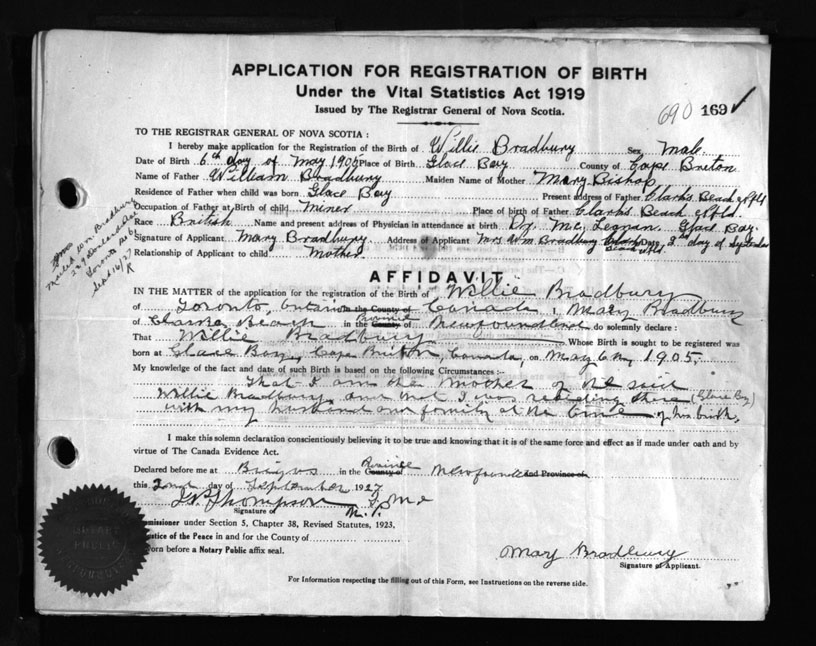 APPLICATION FOR REGISTRATION OF BIRTH
Under the Vital Statistics Act 1919
Issued by The Registrar General of Nova Scotia.
690 169
TO THE REGISTRAR GENERAL OF NOVA SCOTIA :
I hereby make application for the Registration of the Birth of Willie Bradbury Sex Male.
Date of Birth 6th day of May 1905 Place of Birth Glace Bay County of Cape Breton
Name of Father William Bradbury Maiden Name of Mother Mary Bishop
Residence of Father when child was born Glace Bay Present address of Father Clarks Beach Nfld
Occupation of Father at Birth of child Miner Place of birth of Father Clarks Beach Nfld.
Race British Name and present address of Physician in attendance at birth Dr. Glace Bay.
Signature of Applicant Mary Bradbury. Address of Applicant Mrs Wm Bradbury 2nd day of September
Relationship of Applicant to child Mother
Mailed Wm Bradbury
Toronto
Sept 16/27
AFFIDAVIT.
IN THE MATTER of the application for the registration of the Birth of Willie Bradbury
of Toronto, Ontario in the County of Canada I Mary Bradbury
of Clarks Beach in the County of Newfoundland do solemnly declare :
That Willie Bradbury Whose is sought to be registered was
born at Glace Bay, Cape Breton, Canada, on May 6th, 1905.
My knowledge of the fact and date of such Birth is based on the following Circumstances :--
That I am the Mother of the said
Willie Bradbury and that I was residing there (Glace Bay)
with my husband and family at the time of his birth.
I make this solemn declaration conscientiously believing it to be true and knowing that it is of the same force and effect as if made under oath and by
virtue of The Canada Evidence Act.
Declared before me at Brigus in the County of Newfound and Province of
this 2nd day of September 1927
Thompson
Signature of
under Section 5, Chapter 38, Revised Statutes, 1923,
Justice of the Peace in and for the County of
sworn before a Notary Public affix seal.
NOTARY PUBLIC
Mary Bradbury
Signature of Applicant.
For Information respecting the filling out of this Form, see Instructions on the reverse side.